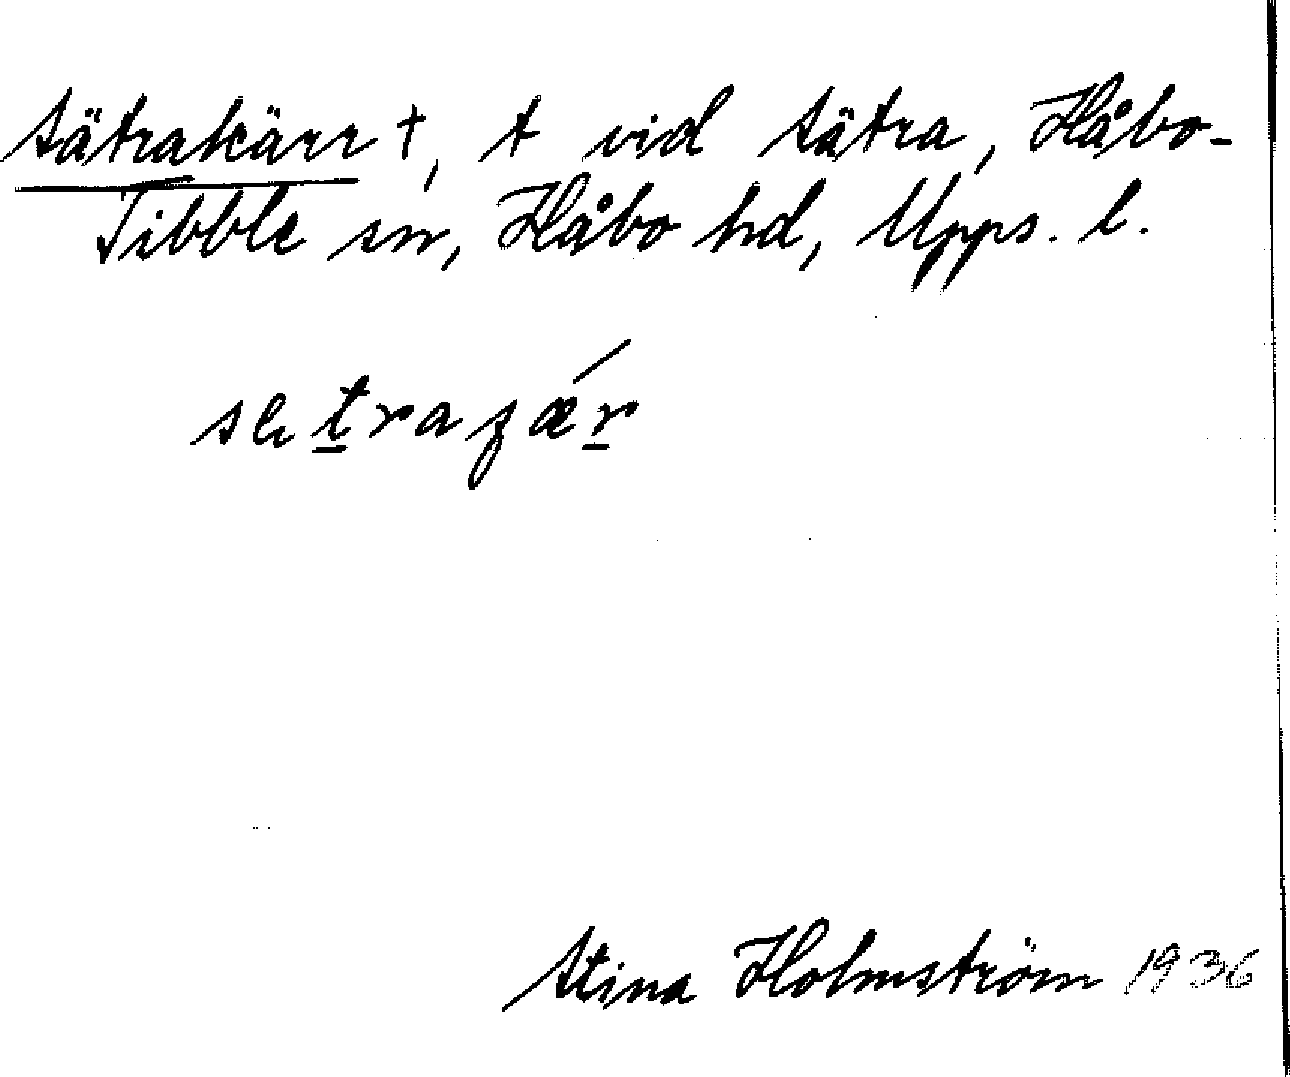 Sätrakärr †, t vid Sätra, Håbo-
Tibble sn, Håbo hd, Upps. l.
Stina Holmström 1936